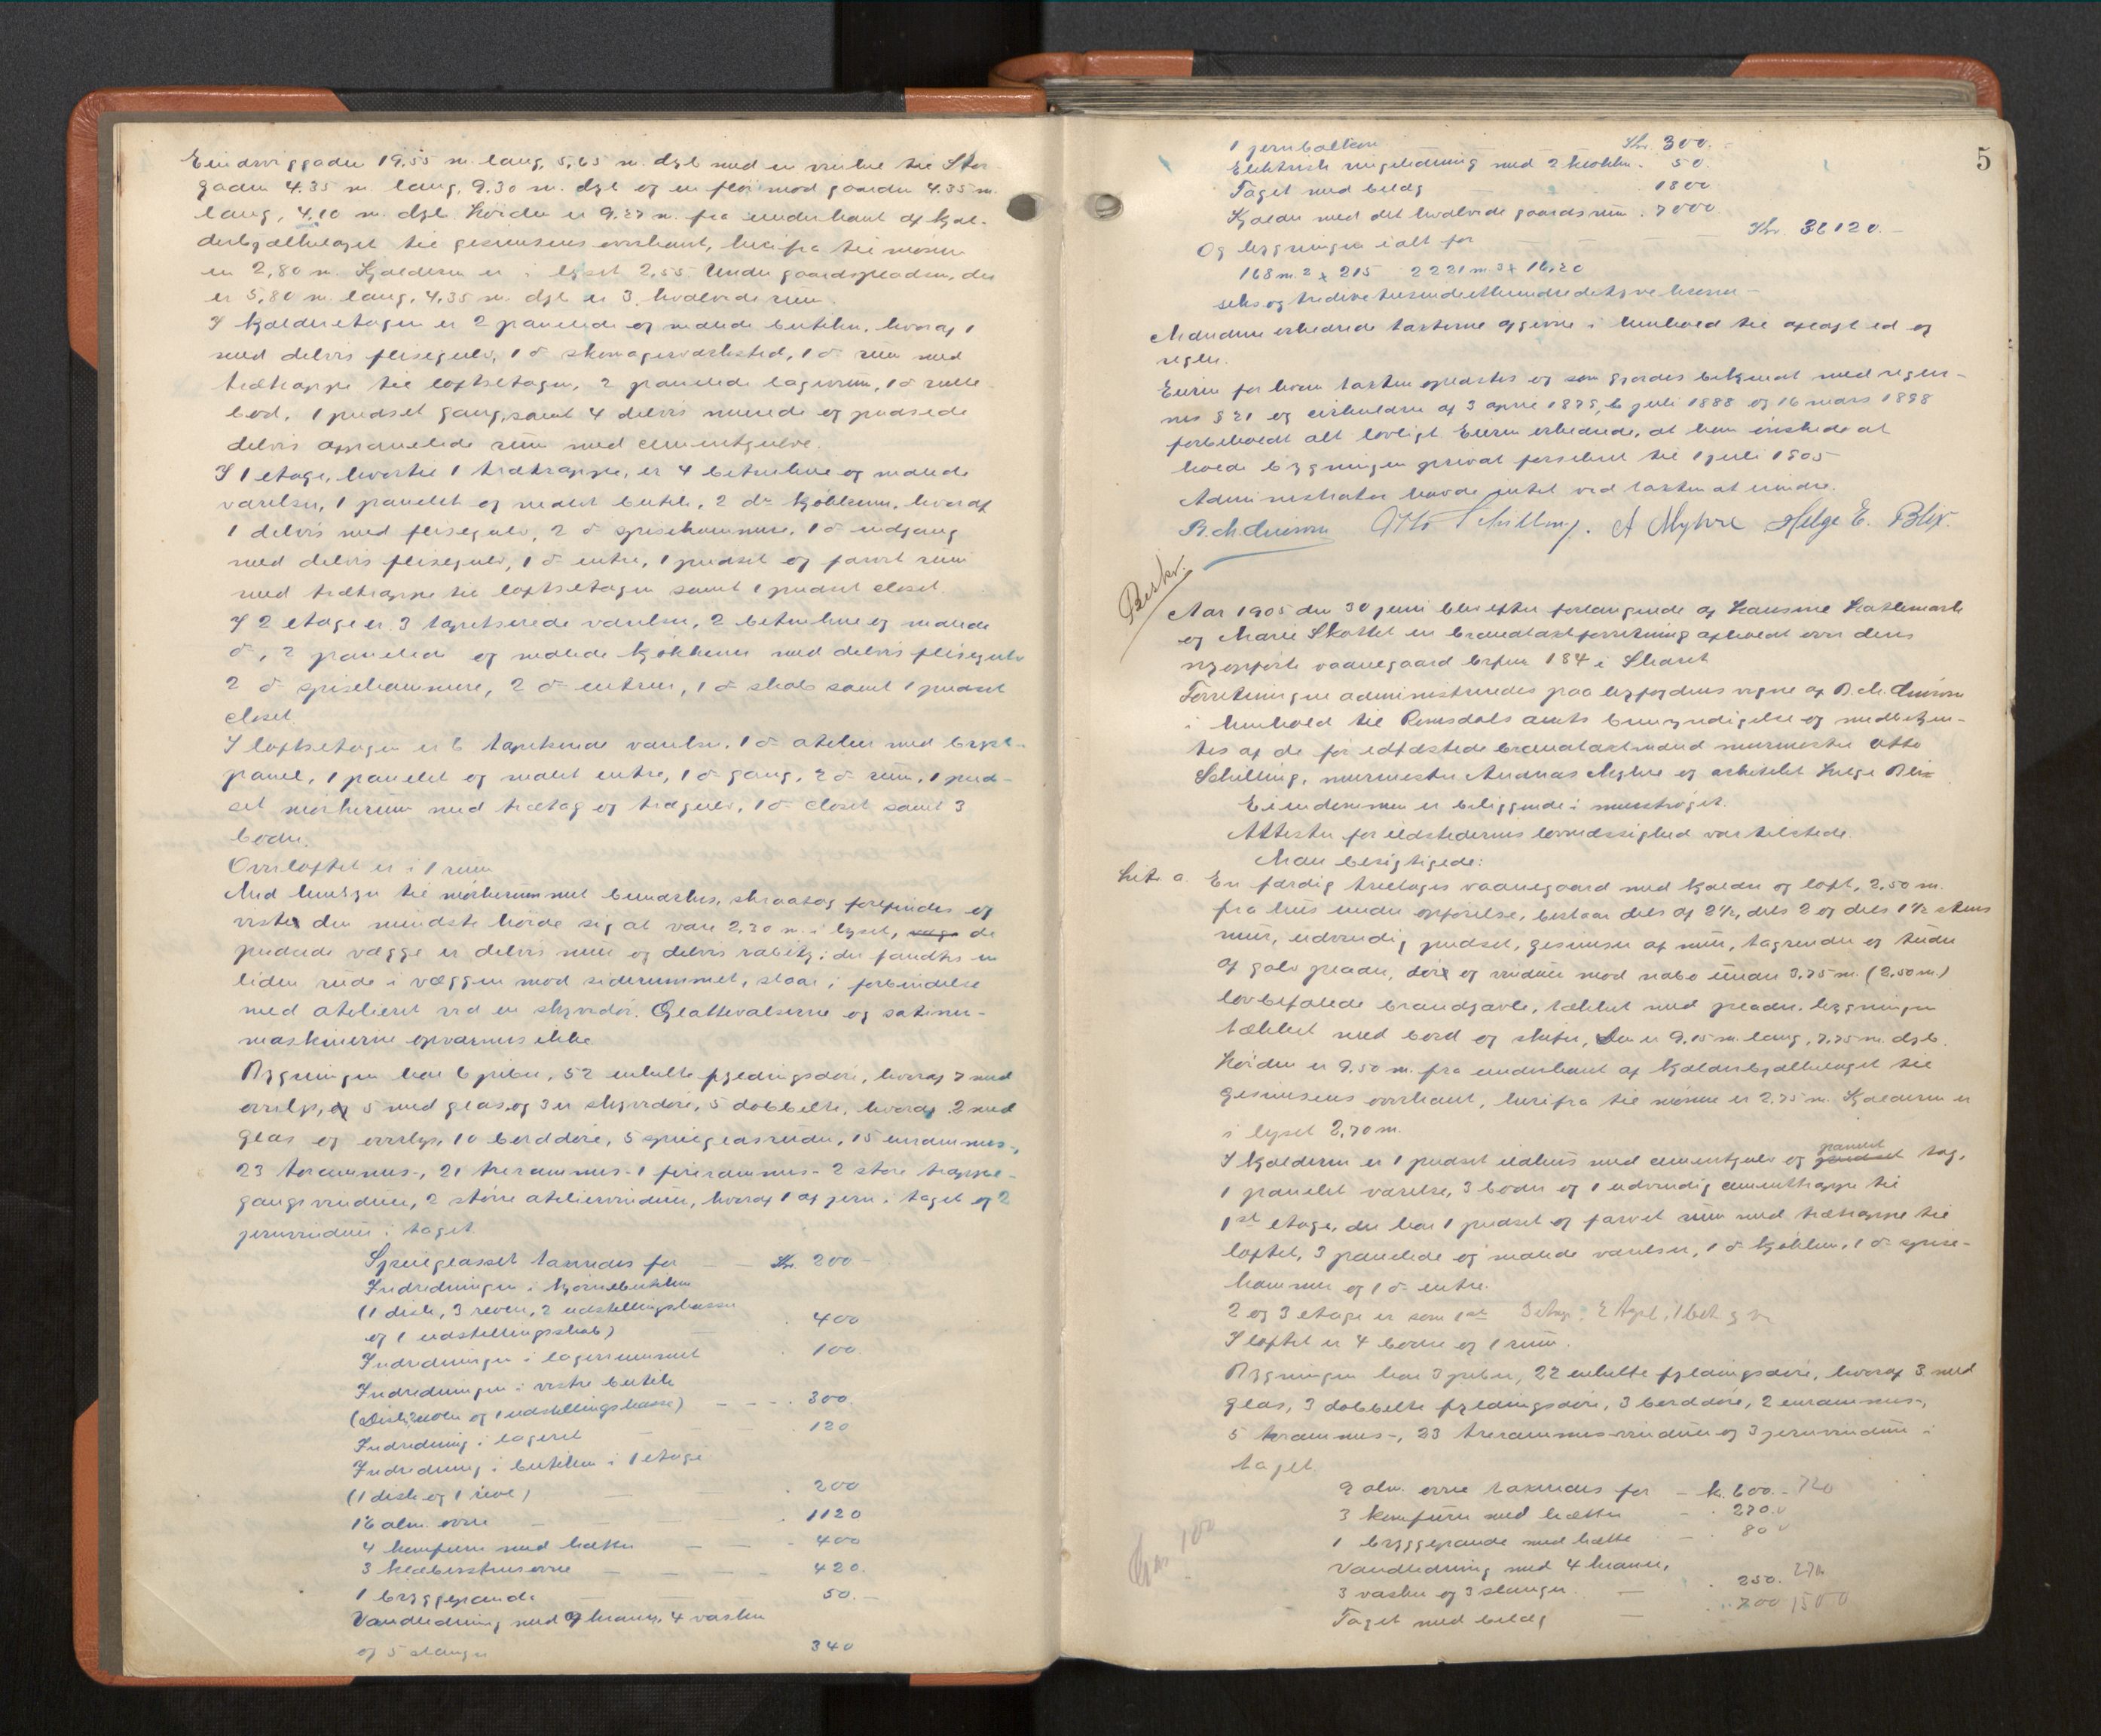 Eindsviggaden 19.55 m. lang, 5,65 m. dyb med en vinkel til Stor-
gaden 4.35 m. lang, 9.30 m. dyb og en fløi mod gaarden 4.35 m.
lang, 4.10 m. dyb. Høiden er 9.27 m. fra underkant af kjæl-
derbjælkelaget til gesimsens overkant, herifra til mønne
er 2,80 m. Kjælderen er i lyset 2,55. Under gaardspladsen, der
er 5,80 m. lang, 4,35 m. dyb er 3 hvælvede rum.
I kjælderetagen er 2 panelede og malede butiker, hvoraf 1
med delvis flisegulv, 1 do skomagerværksted, 1 do rum med
trætrappe til loftsetagen, 2 panelede lagerrum, 1 do rulle-
bod, 1 pudset gang, samt 4 delvis murede og pudsede
delvis oppanelede rum med cementgulve.
I 1 etage, hvortil 1 trætrappe, er 4 betrukne og malede
værelser, 1 panelet og malet butik, 2 do kjøkkener, hvoraf
1 delvis med flisegulv, 2 do spisekammere, 1 do indgang
med delvis flisegulv, 1 do entre, 1 pudset og farvet rum
med trætrappe til loftsetagen samt 1 pudset closet.
I 2 etage er 3 tapetserede værelser, 2 betrukne og malede
do, 2 panelede og malede kjøkkener med delvis flisegulv
2 do spisekammere, 2 do entreer, 1 do skab samt 1 pudset
closet.
I loftsetagen er 6 tapetserede værelser, 1 do atelier med bryst-
panel, 1 panelet og malet entre, 1 do gang, 2 do rum, 1 pud-
set mørkerum med trætag og trægulv, 1 do closet samt 3
boder.
Overloftet er i 1 rum
Med hensyn til mørkerummet bemærkes, skraatag forefindes og
viste den mindste høide sig at være 2.30 m. i lyset, de
pudsede vægge er delvis mur og delvis rabitz; der fandtes en
liden rude i væggen mod siderummet, staar i forbindelse
med atelieret ved en skyvedør. Glattevalserne og satiner-
maskinerne opvarmes ikke
Bygningen har 6 piber, 52 enkelte fyldingsdøre, hvoraf 7 med
overlys, 5 med glas, og 3 er skyvedøre, 5 dobbelte, hvoraf 2 med
glas og overlys, 10 borddøre, 5 speilglasruder, 15 enrammes-,
23 torammes-, 21 trerammes- 1 firerammes- 2 store trappe-
gangsvinduer, 2 større ateliervinduer, hvoraf 1 af jern i taget og 2
jernvinduer i taget.
Speilglasset taxeredes for — — Kr. 200 —
Indredningen i hjørnebutiken
(1 disk, 3 reoler, 2 udstillingskasser
og 1 udstillingsskab) — . 400
Indredningen i lagerrummet . 100
Indredningen i vestre butik
(Disk, reoler og 1 udstillingskasse) — — — . 300.
Indredning i lageret — — . 120
Indredning i butiken i 1 etage
(1 disk og 1 reol) — — . 200
16 alm. ovne — — — . 1120
4 komfurer med hætter — — — . 400
3 klæbersteusovne — — — . 420.
1 bryggepande — — 50. —
Vandledning med 9 kraner, 4 vasker
og 5 slanger 340
5
1 jernbalkon Kr. 300. —
Elektrisk ringeledning med 2 klokker . 50.
Taget med belæg — . 1800
Kjælder med det hvælvede gaardsrum . 7000
Og bygningen ialt for — — — Kr. 36120. —
168 m.² x 215 2221 m³ x 16,20
seks og tredive tusinde et hundrede tyve kroner —
Mændene erklærede taxterne afgivne i henhold til aflagt ed og
regler.
Eieren for hvem taxten oplæstes og som gjordes bekjendt med regler-
nes § 21 og cirkulærer af 3 april 1875, 6 juli 1888 og 16 mars 1898
forbeholdt alt lovligt. Eieren erklærede, at han ønskede at
holde bygningen privat forsikret til 1 juli 1905
Administrator havde intet ved taxten at erindre.
Otto Schilling. A Myhre Helge E. Blix.
Beskr.
Aar 1905 den 30 juni blev efter forlangende af Hansine Hattemark
og Marie Skottet en brandtaxtforretning afholdt over deres
nyopførte vaanegaard brfnr 184 i Skaret
Forretningen administreredes paa byfogdens vegne af
i henhold til Romsdals amts bemyndigelse og medbetjen-
tes af de før edfæstede brandtaxtmænd murmester Otto
Schilling, murmester Andreas Myhre og arkitekt Helge Blix
Eiendommen er beliggende i murstrøget.
Attester for ildstedernes lovmæssighed var tilstede.
Man besigtigede:
Litr. a. En færdig treetages vaanegaard med kjælder og loft, 2,50 m.
fra hus under opførelse, bestaar dels af 2½, dels 2 og dels 1½ stens
mur, udvendig pudset, gesimser af mur, tagrender og tuder
af galv. plader, dør og vinduer mod nabo under 3.75 m. (2,50 m.)
lovbefalede brandgavle, tækket med plader. bygningen
tækket med bord og skifer, Den er 9,15 m. lang, 7,75 m. dyb.
Høiden er 9.50 m. fra underkant af kjælderbjælkelaget til
gesimsens overkant, herifra til mønne er 2.75 m. Kjælderen er
i lyset 2,70 m.
I kjælderen er 1 pudset ildhus med cementgulv og panelet tag,
1 panelet værelse, 3 boder og 1 udvendig cementtrappe til
1ste etage, der har 1 pudset og farvet rum med trætrappe til
loftet, 3 panelede og malede værelser, 1 do kjøkken, 1 do spise-
kammer og 1 do entre.
2 og 3 etage er som 1ste 3 etag: 2 tapt, 1 bet
I loftet er 4 boder og 1 rum.
Bygningen har 3 piber, 22 enkelte fyldingsdøre, hvoraf 3 med
glas, 3 dobbelte fyldingsdøre, 3 borddøre, 2 enrammes-,
5 torammes-, 23 trerammes-vinduer og 3 jernvinduer i
taget
9 alm. ovne taxeredes for — k. 600. — 720
3 komfurer med hætter — . 270.
1 bryggepande med hætte — . 80
Vandledning med 4 kraner,
3 vasker og 3 slanger. — . 250. 270
Taget med belæg — . 700 1500
100